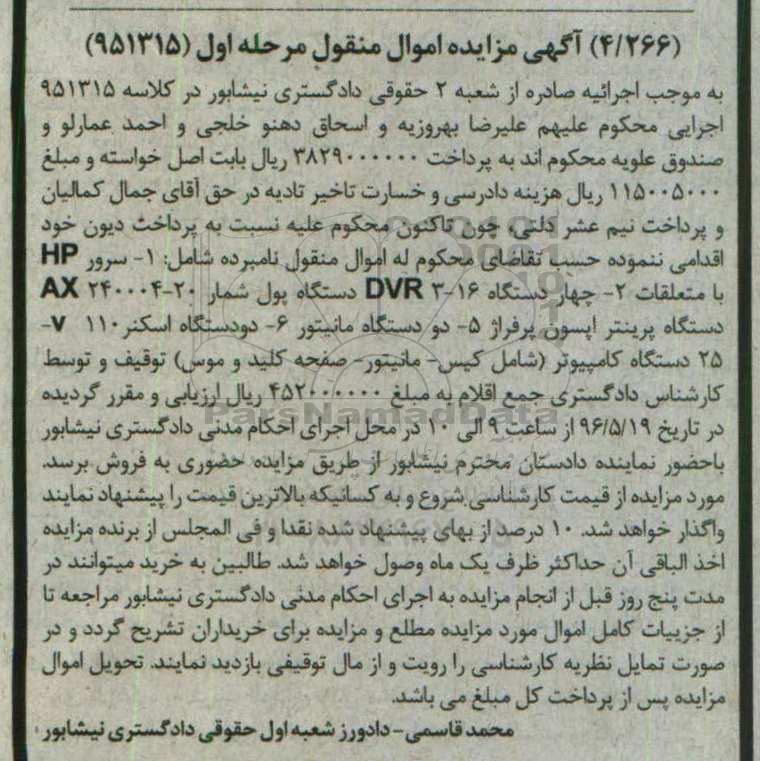 (۴/۲۶۶) آگهی مزایده اموال منقول مرحله اول (۹۵۱۳۱۵)
به موجب اجرائیه صادره از شعبه ۲ حقوقی دادگستری نیشابور در کلاسه ۹۵۱۳۱۵
اجرایی محکوم علیهم علیرضا بهروزیه و اسحاق دهنو خلجی و احمد عمارلو و
صندوق علویه محکوم اند به پرداخت ۳۸۲۹۰۰۰۰۰۰ ریال بابت اصل خواسته و مبلغ
۱۱۵۰۰۵۰۰۰ ریال هزینه دادرسی و خسارت تاخیر تادیه در حق آقای جمال کمالیان
و پرداخت نیم عشر دلتی، چون تاکنون محکوم علیه نسبت به پرداخت دیون خود
اقدامی ننموده حسب تقاضای محکوم له اموال منقول نامبرده شامل: ۱- سرور HP
با متعلقات ۲- چهار دستگاه ۱۶-۳ DVR دستگاه پول شمار ۲۰-۲۴۰۰۰۴ AX
دستگاه پرینتر اپسون پرفراژ ۵- دو دستگاه مانیتور ۶- دودستگاه اسکنر ۱۱۰ ۷-
۲۵ دستگاه کامپیوتر (شامل کیس- مانیتور- صفحه کلید و موس) توقیف و توسط
کارشناس دادگستری جمع اقلام به مبلغ ۴۵۲۰۰۰۰۰۰ ریال ارزیابی و مقرر گردیده
در تاریخ ۹۶/۵/۱۹ از ساعت ۹ الی ۱۰ در محل اجرای احکام مدنی دادگستری نیشابور
باحضور نماینده دادستان محترم نیشابور از طریق مزایده حضوری به فروش برسد.
مورد مزایده از قیمت کارشناسی شروع و به کسانیکه بالاترین قیمت را پیشنهاد نمایند
واگذار خواهد شد. ۱۰ درصد از بهای پیشنهاد شده نقدا و فی المجلس از برنده مزایده
اخذ الباقی آن حداکثر ظرف یک ماه وصول خواهد شد. طالبین به خرید میتوانند در
مدت پنج روز قبل از انجام مزایده به اجرای احکام مدنی دادگستری نیشابور مراجعه تا
از جزییات کامل اموال مورد مزایده مطلع و مزایده برای خریداران تشریح گردد و در
صورت تمایل نظریه کارشناسی را رویت و از مال توقیفی بازدید نمایند. تحویل اموال
مزایده پس از پرداخت کل مبلغ می باشد.
محمد قاسمی- دادورز شعبه اول حقوقی دادگستری نیشابور
ParsNamadData